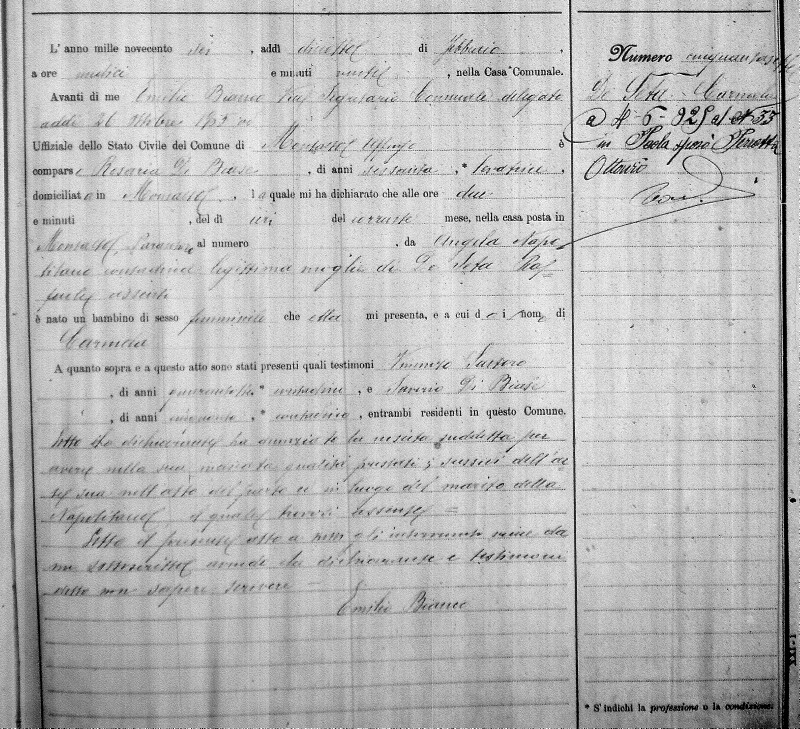 L'anno mille novecento sei, addì di Febbraio,
a ore undici e minuti venti, nella Casa Comunale.
Avanti di me Emilio Bianco Segretario Comunale delegato
addì 26 Ottobre
Uffiziale dello Stato Civile del Comune di Montalto Uffugo è
comparsa Rosaria Di Biase, di anni sessanta, * levatrice,
domiciliata in Montalto, la quale mi ha dichiarato che alle ore due
e minuti , del dì ieri del corrente mese, nella casa posta in
Montalto, al numero , da Angela Napo=
litano contadina legittima moglie di De Seta Raf=
faele assente
è nato un bambino di sesso femminile che essa mi presenta, e a cui dà i nomi di
Carmela
A quanto sopra e a questo atto sono stati presenti quali testimoni Santoro
, di anni * contadino, e Saverio Di Biase
, di anni cinquanta, * contadino, entrambi residenti in questo Comune.
dichiarante ha denunziato la nascita suddetta per
avere nella sua qualità prestati i servizi dell'ar=
te sua nell'atto del parto e in luogo del marito della
Napolitano, il quale trovasi assente =
Letto il presente atto a tutti gli intervenuti viene da
me sottoscritto avendo la dichiarante e testimoni
detto non sapere scrivere =
Emilio Bianco
Numero
De Seta Carmela
a 4-5-925 al N 33
in Paola sposò Perrotta
Ottavio
* S'indichi la professione o la condizione.